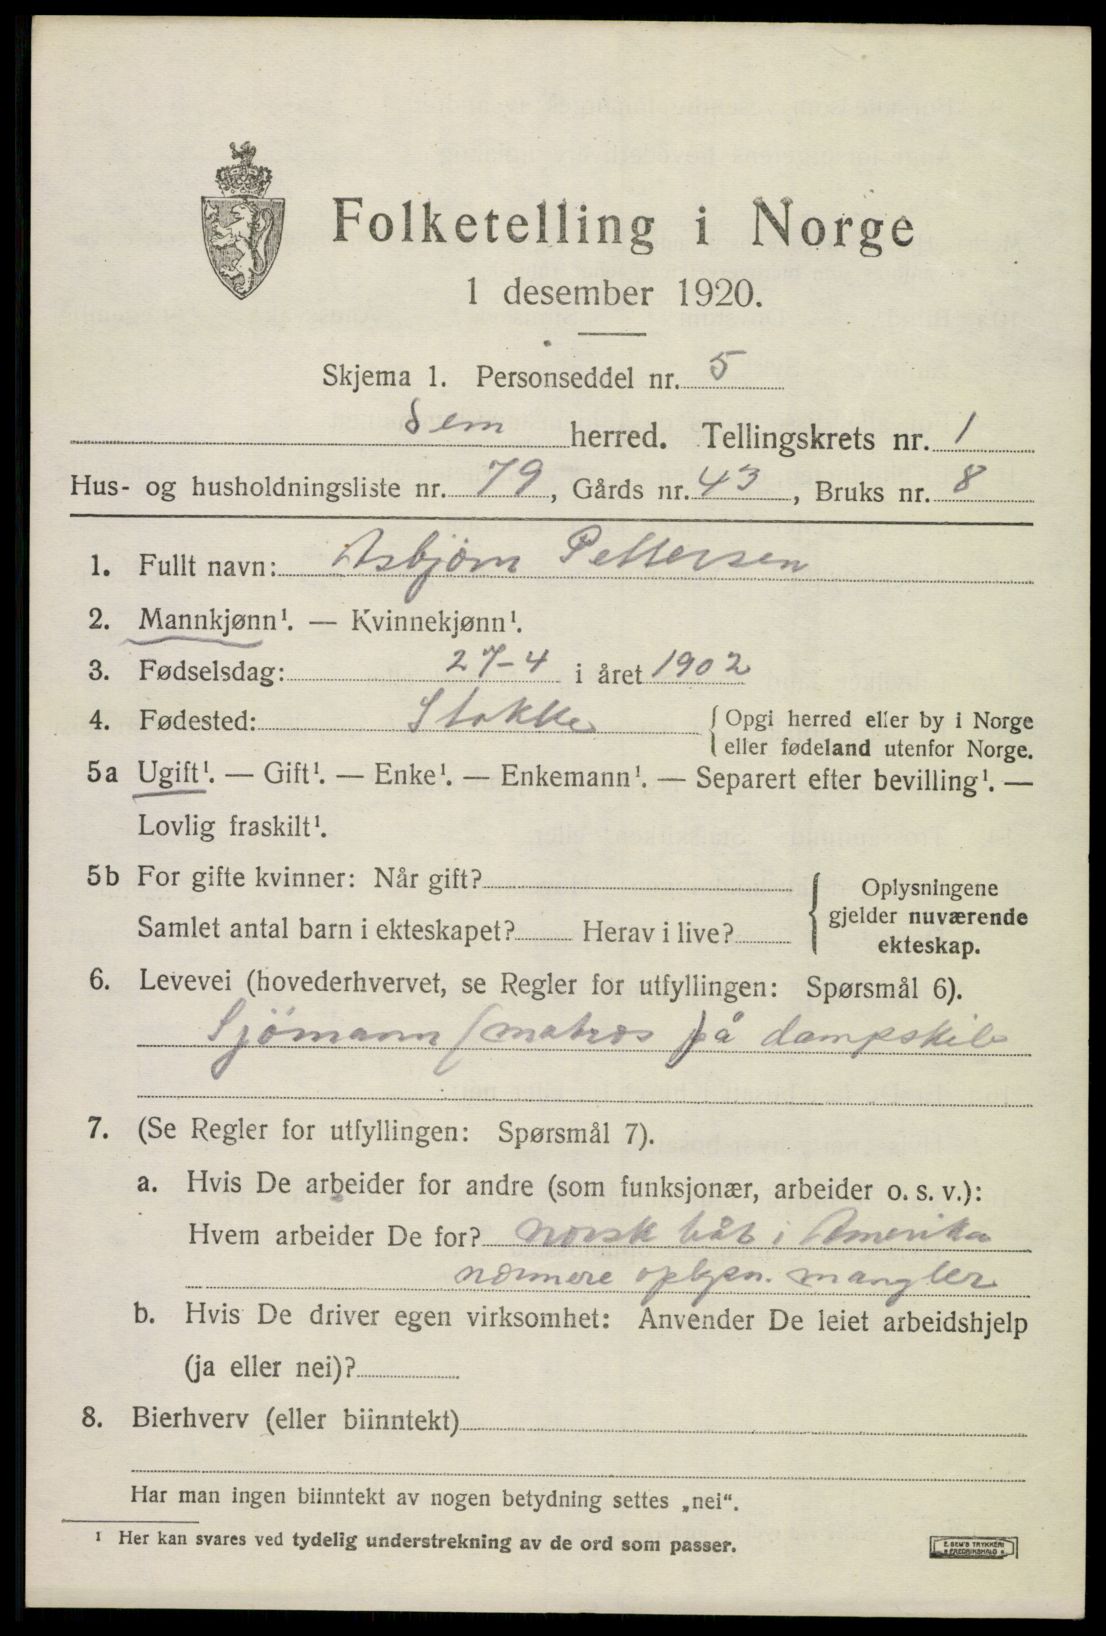 Folketelling i Norge
1 desember 1920.
Skjema 1. Personseddel nr. 5
Sem herred. Tellingskrets nr. 1
Hus- og husholdningsliste nr. 79, Gårds nr. 43, Bruks nr. 8
1. Fullt navn: Asbjörn Pettersen
2. Mannkjønn¹. — Kvinnekjønn¹.
3. Fødselsdag: 27-4 i året 1902
4. Fødested: Stokke { Opgi herred eller by i Norge
eller fødeland utenfor Norge.
5a Ugift¹. — Gift¹. — Enke¹. — Enkemann¹. — Separert efter bevilling¹. —
Lovlig fraskilt¹.
5b For gifte kvinner: Når gift? { Oplysningene
gjelder nuværende
Samlet antal barn i ekteskapet? Herav i live?
ekteskap.
6. Levevei (hovederhvervet, se Regler for utfyllingen: Spørsmål 6).
Sjömann (matros) på dampskib
7. (Se Regler for utfyllingen: Spørsmål 7).
a. Hvis De arbeider for andre (som funksjonær, arbeider o. s. v.):
Hvem arbeider De for? Norsk båt i Amerika
nærmere oplysn. mangler
b. Hvis De driver egen virksomhet: Anvender De leiet arbeidshjelp
(ja eller nei)?
8. Bierhverv (eller biinntekt)
Har man ingen biinntekt av nogen betydning settes „nei".
¹ Her kan svares ved tydelig understrekning av de ord som passer.
E. SEM'S TRYKKERI
FREDRIKSHALD